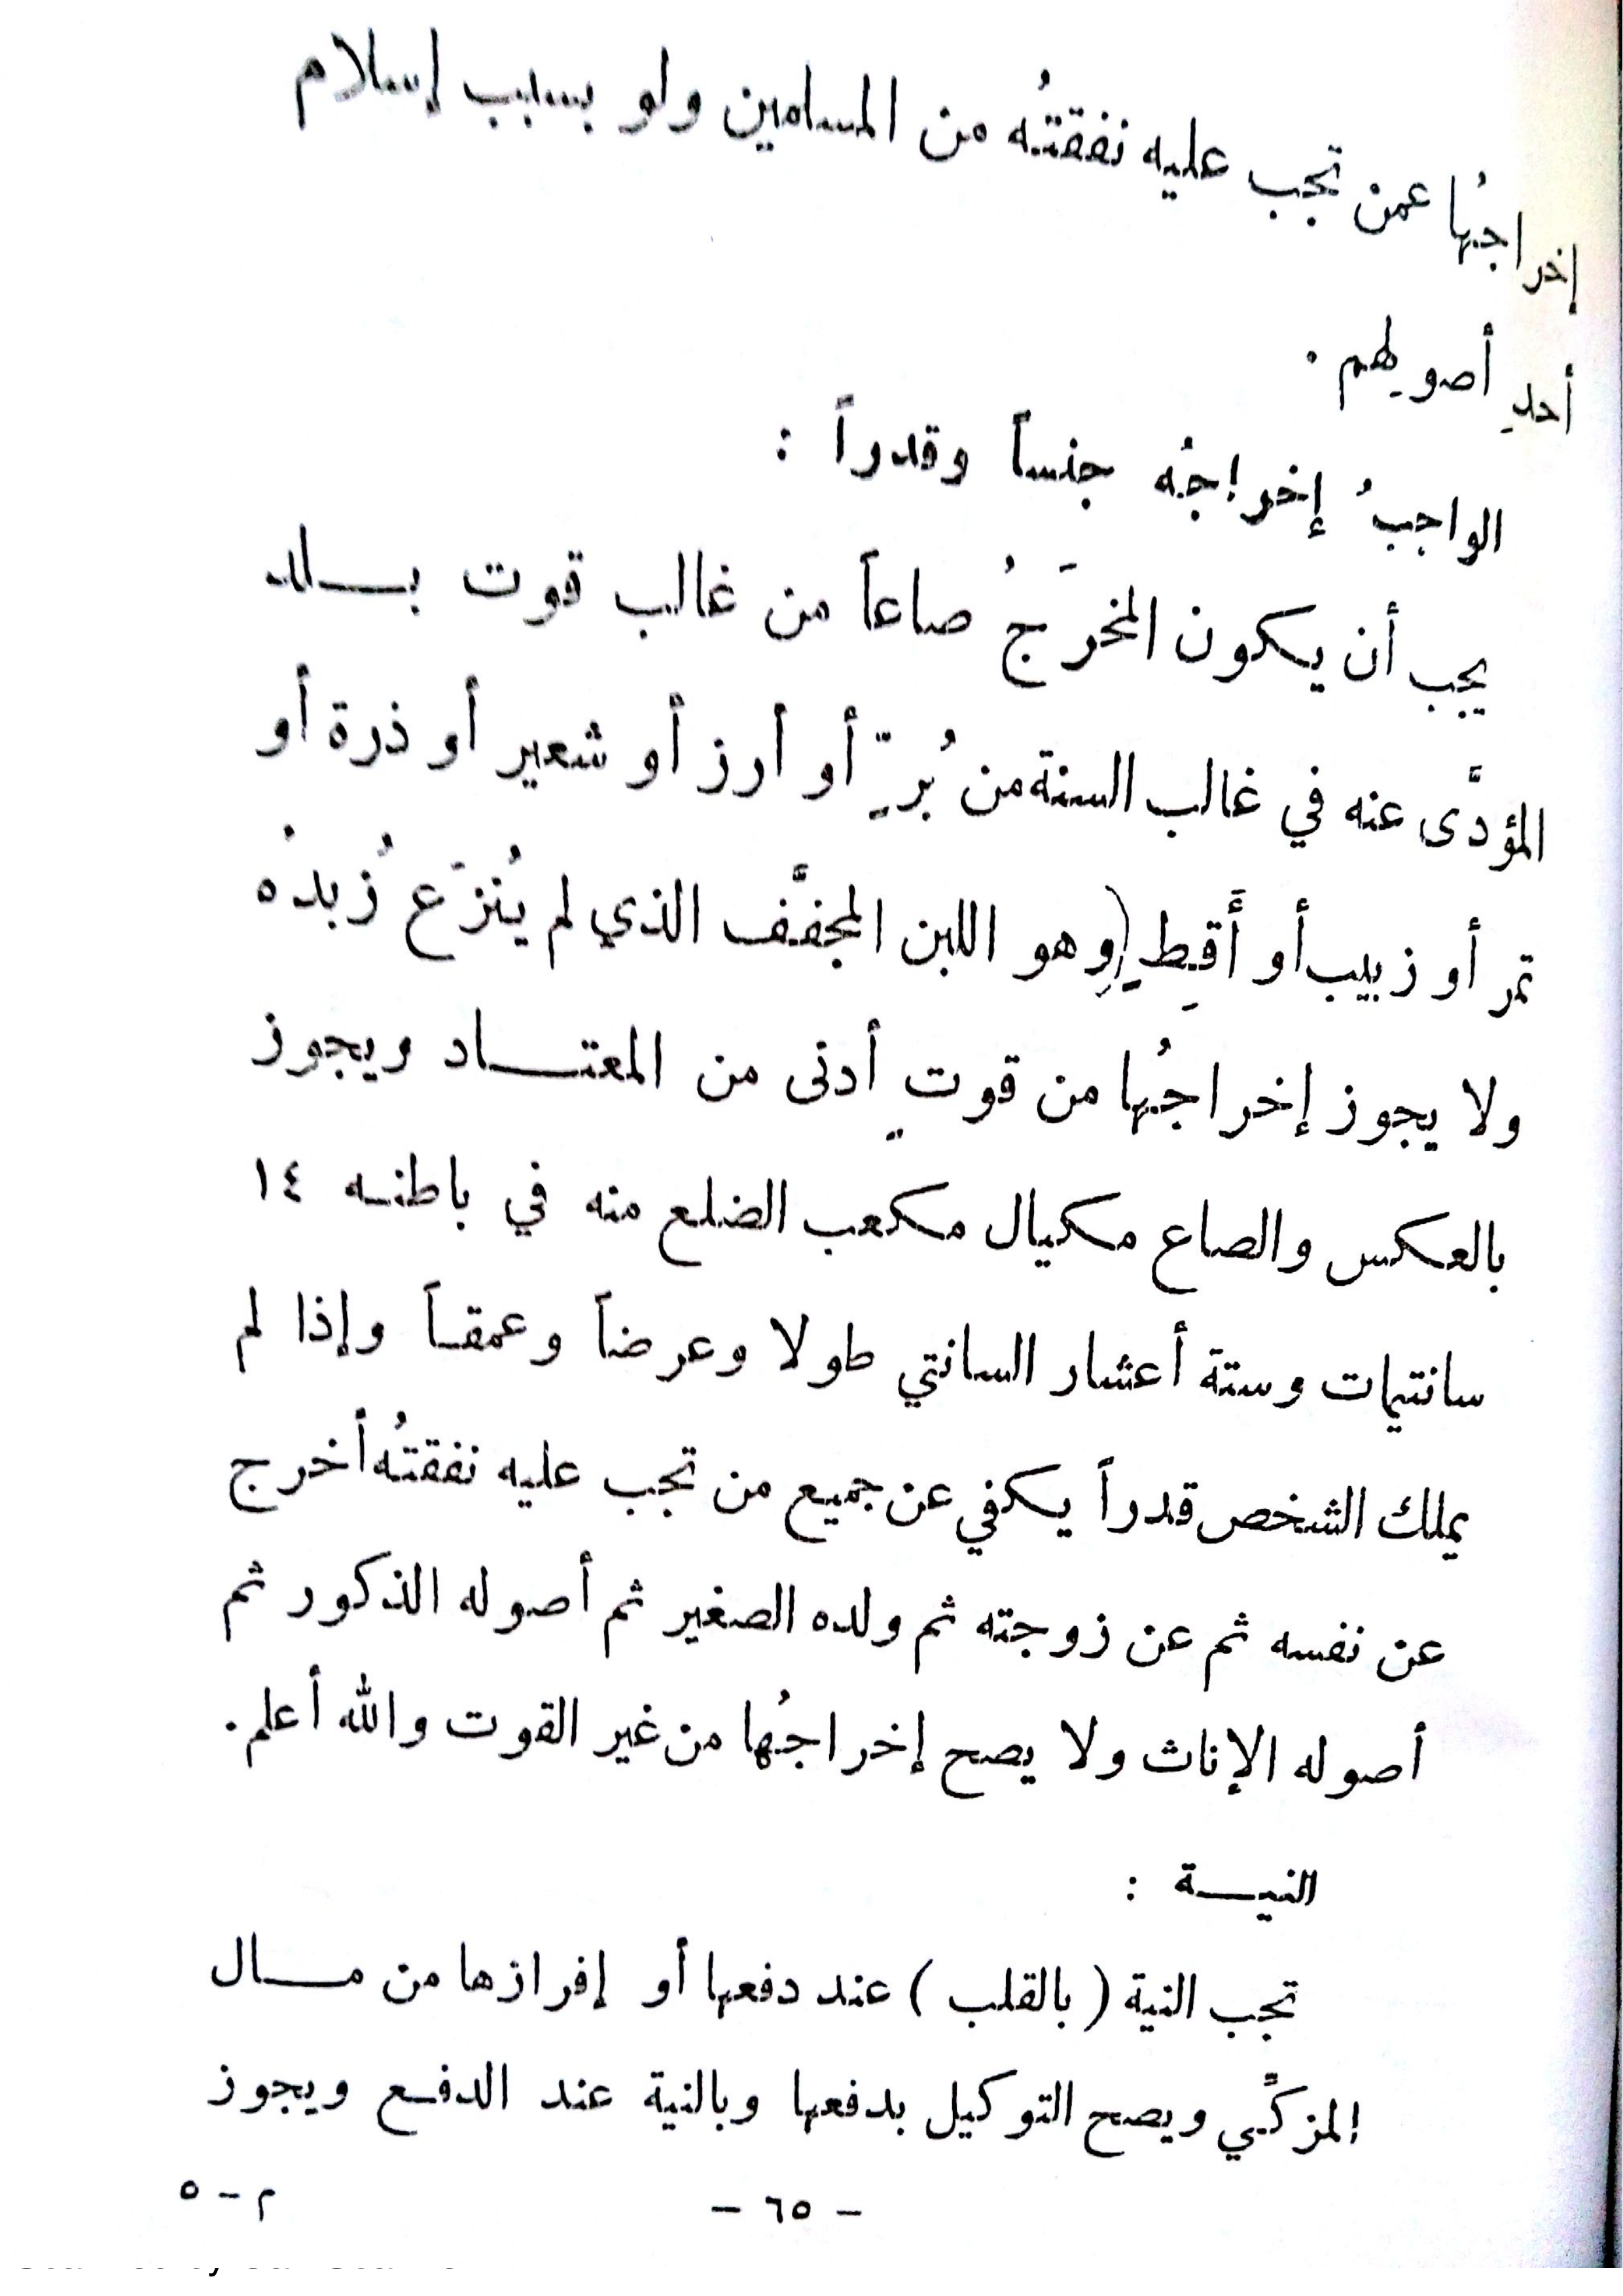 إخراجُها عمن تجب عليه نفقتُه من المسلمين ولو بسبب إسلام
أحدِ أصولِهم .
الواجبُ إخراجُه جنساً وقدراً :
يجب أن يكون المخرَجُ صاعاً من غالب قوت بلد
المؤدَّى عنه في غالب السنة من بُرٍّ أو أرز أو شعير أو ذرة أو
تمر أو زبيب أو أَقِطٍ (وهو اللبن المجفَّف الذي لم يُنزَع زُبدُه
ولا يجوز إخراجُها من قوتٍ أدنى من المعتاد ويجوز
بالعكس والصاع مكيال مكعب الضلع منه في باطنه ١٤
سانتيمات وستة أعشار السانتي طولا وعرضاً وعمقاً وإذا لم
يملك الشخص قدراً يكفي عن جميع من تجب عليه نفقتُه أخرج
عن نفسه ثم عن زوجته ثم ولده الصغير ثم أصوله الذكور ثم
أصوله الإناث ولا يصح إخراجُها من غير القوت والله أعلم.
النية :
تجب النية ( بالقلب ) عند دفعها أو إفرازها من مال
المزكِّي ويصح التوكيل بدفعها وبالنية عند الدفع ويجوز
– ٦٥ – م – ٥